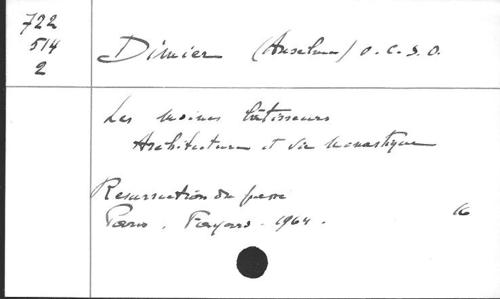 722
514
2
Dimier (Anselme) O.C.S.O.
Les moines bâtisseurs
Architecture et vie monastique
Résurrection du passé
Paris. Fayard. 1964.
16